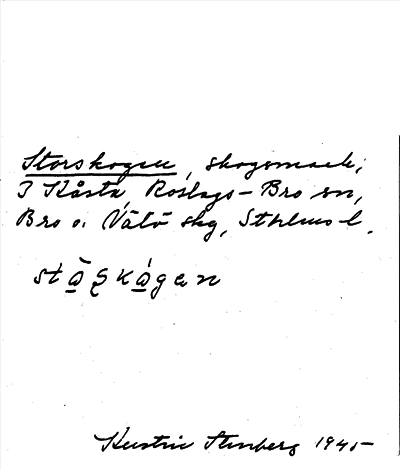 Storskogen, skogsmark;
I Kårsta, Roslags-Bro sn,
Bro o. Vätö skg, Sthlms l.
stå̀ʂkǻgen
Kerstin Stenberg 1945